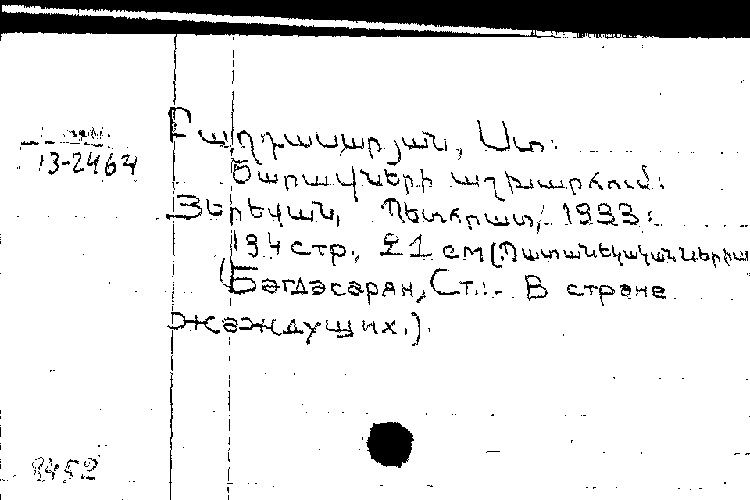 Բաղդասարյան, Ստ:
13-2464
Ծարավների աշխարհում:
Յերեվան, Պետհրատ, 1933:
194 стр., 21 см (Պատանեկականների
(Багдасарян, Ст.:- В стране
жаждущих.).
8452